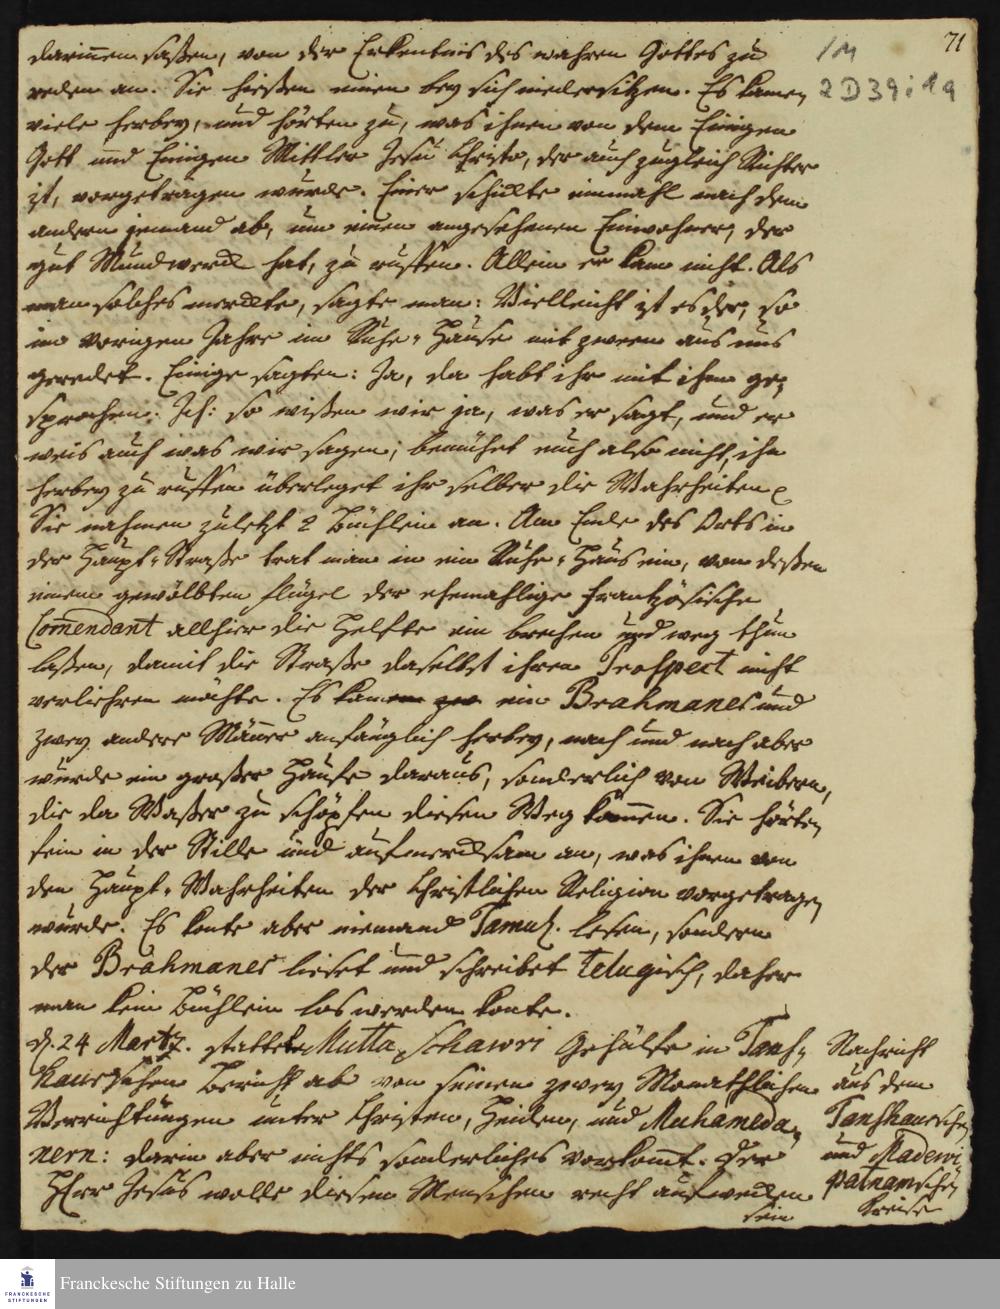 71
1M
2 D 39 : 19
darinnen saßen, von der Erkentnis des wahren Gottes zu
reden an. Sie hießen einen bey sich niedersitzen. Es kamen
viele herbey, und hörten zu, was ihnen von dem Einigen
Gott und Einigen Mittler Jesu Christo, der auch zugleich Richter
ist, vorgetragen wurde. Einer schickte einmahl nach dem
andern jemand ab, um einen angesehenen Einwohner, der
gut Mundwerck hat, zu ruffen. Allein er kam nicht. Als
man solches merckte, sagte man: Vielleicht ist es der, so
im vorigen Jahre im Ruhe-Hause mit zween aus uns
geredet. Einige sagten: Ja, da habt ihr mit ihm ge-
sprochen. Ich: so wißen wir ja, was er sagt, und er
weis auch was wir sagen; bemühet euch also nicht, ihn
herbey zu ruffen überleget ihr selber die Wahrheiten
Sie nahmen zuletzt 2 Büchlein an. Am Ende des Orts in
der Haupt-Straße trat man in ein Ruhe-Haus ein, von deßen
einem gewölbten Flügel der ehemahlige Frantzösische
Com̄endant allhier die Helfte ein brechen und weg thun
laßen, damit die Straße daselbst ihren Prospect nicht
verliehren möchte. Es kamen ein Brahmanes und
zwey andere Männer anfänglich herbey, nach und nach aber
wurde ein großer Haufe daraus, sonderlich von Weibern,
die da Waßer zu schöpfen diesen Weg kommen. Sie hörten
fein in der Stille und aufmercksam an, was ihnen von
den Haupt-Wahrheiten der Christlichen Religion vorgetragen
wurde. Es konte aber niemand Tamul. lesen, sondern
der Brahmanes lieset und schreibet Telugisch, daher
man kein Büchlein los werden konte.
d. 24 Martz. stattete Mutta Schawri Gehülfe in Tansch-
hauerschen Bericht ab von seinen zwey Monathlichen
Verrichtungen unter Christen, Heiden, und Muhameda-
nern: darin aber nichts sonderliches vorkom̄t. Der
HErr Jesus wolle diesen Menschen recht aufwecken
sein
Nachricht
aus dem
Tanschauerschen
und Madewi-
patnamschen
Kreise
Franckesche Stiftungen zu Halle
FRANCKESCHE
STIFTUNGEN